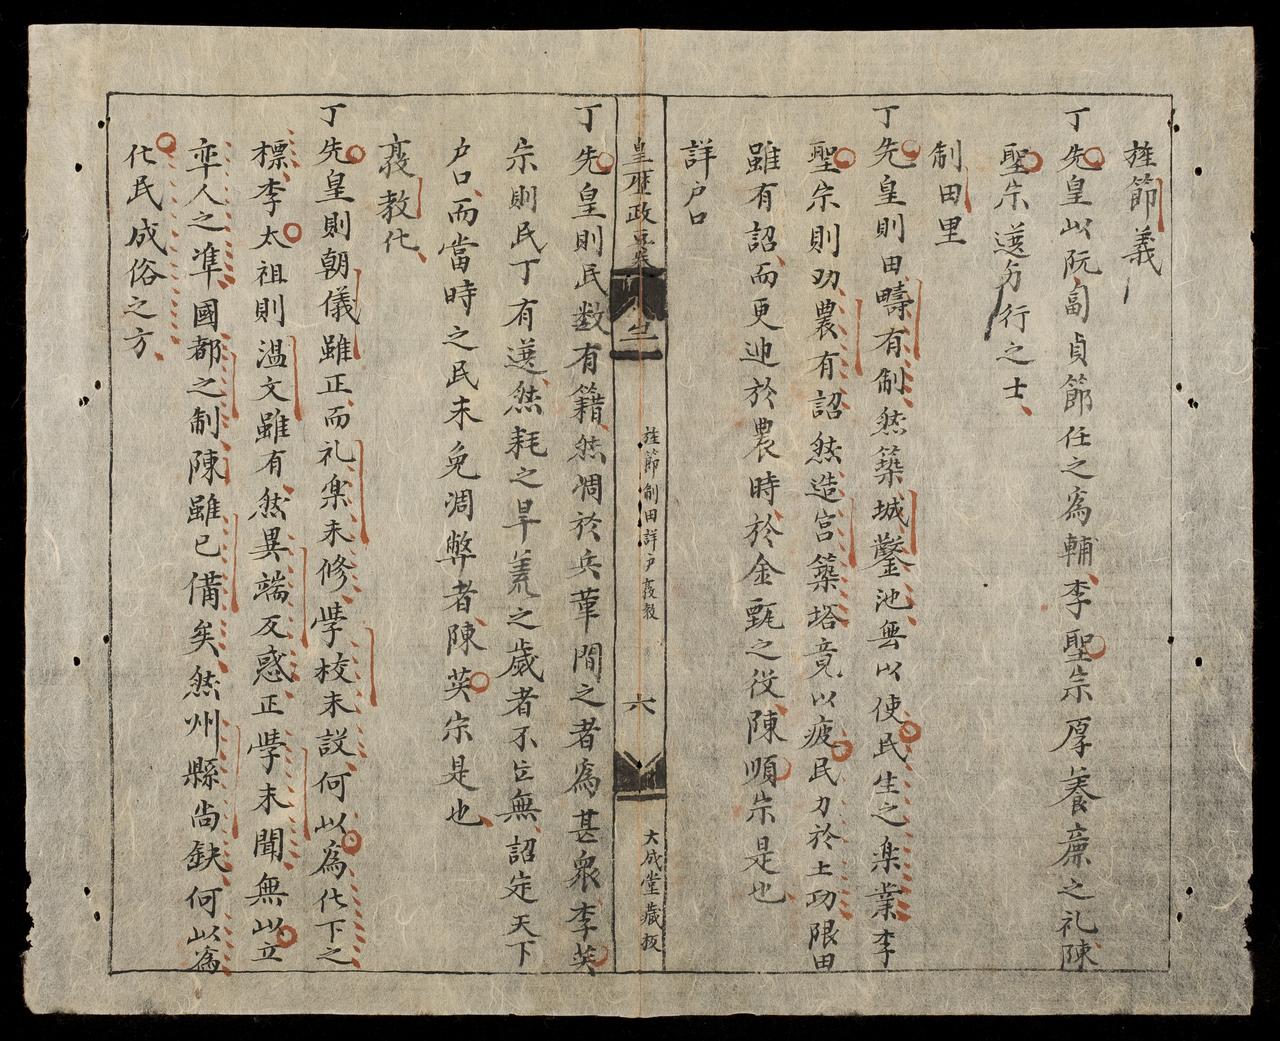 旌節義
丁先皇以阮匐貞節任之為輔李聖宗厚養廉之礼陳
聖宗選方行之士
制田里
丁先皇則田疇有制然築城鑿池無以使民生之楽業李
聖宗則劝農有詔然造宫築塔竟以疲民力於土功限田
雖有詔而更迆於農時於金甌之役陳順宗是也
詳户口
皇歷政要卷
旌節制田詳户𢽾教
六
大成堂藏板
丁先皇則民数有籍然凋於兵革間之者為甚衆李英
宗則民丁有選然耗之旱荒之歲者不乏無詔定天下
户口而當時之民未免凋弊者陳英宗是也
敦教化
丁先皇則朝儀雖正而礼楽未修學校未設何以為化下之
標李太祖則温文雖有然異端反惑正學未聞無以立
率人之準國都之制陳雖已備矣然州縣尚缺何以為
化民成俗之方